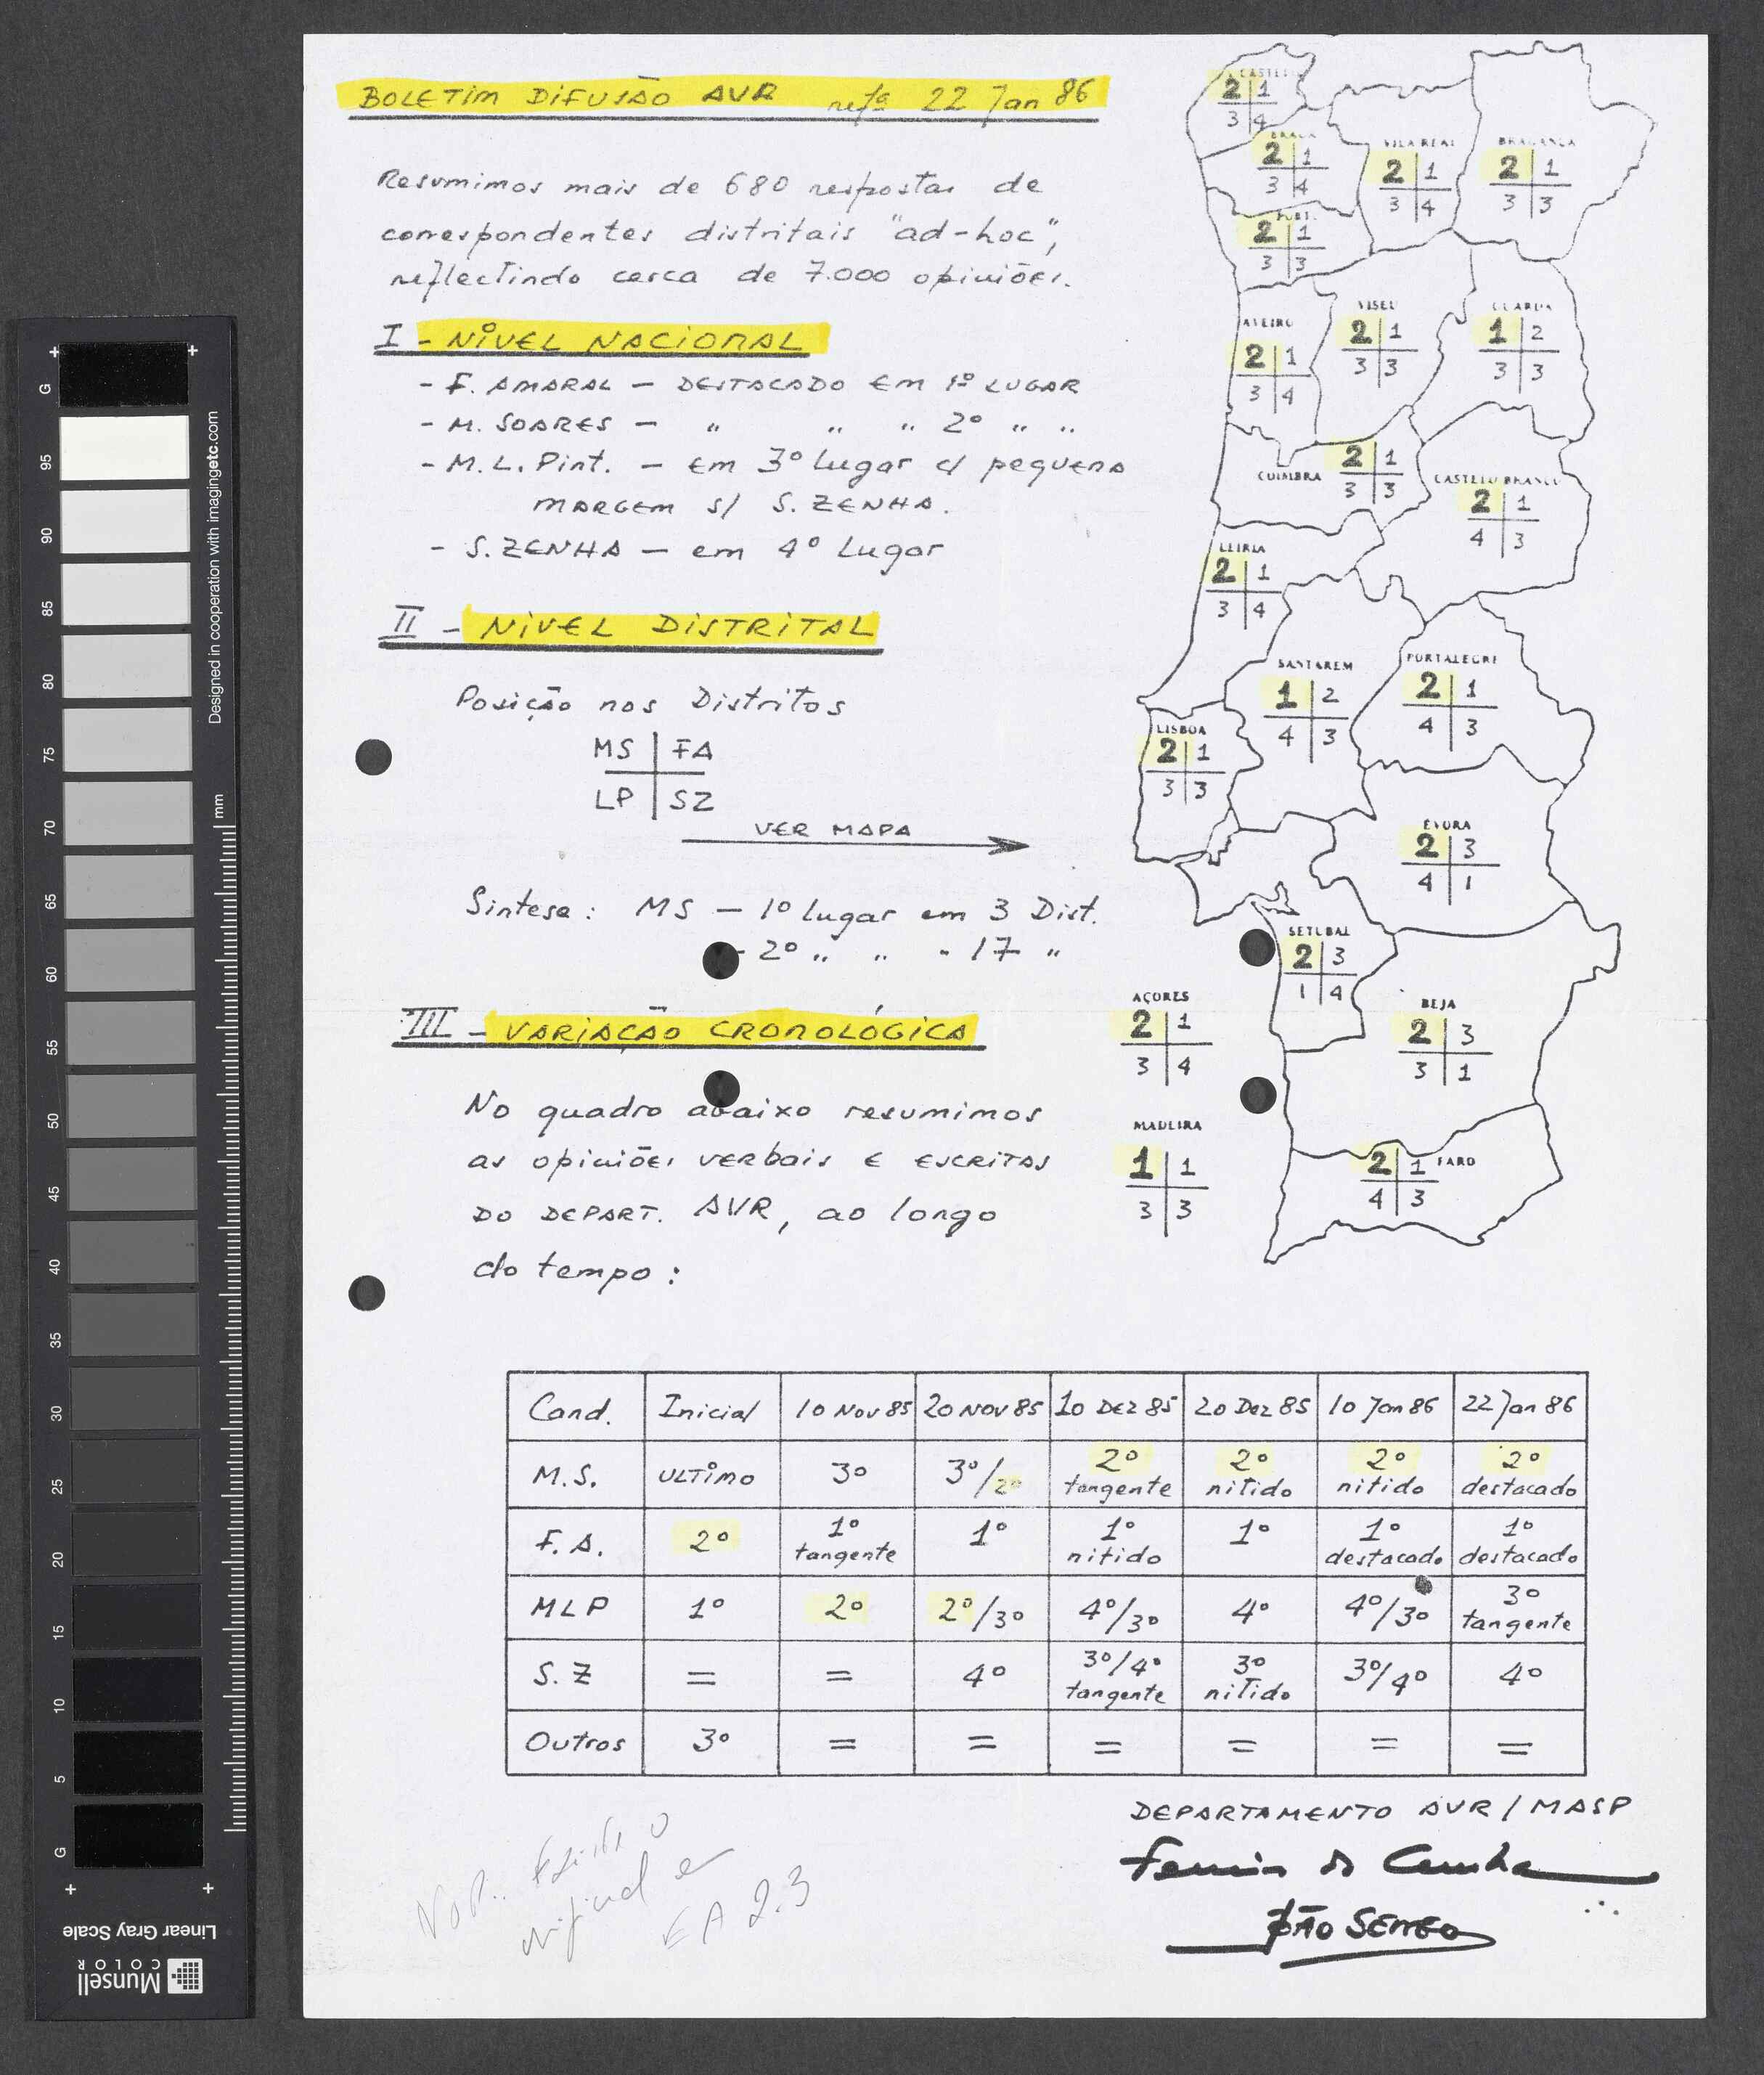 BOLETIM DIFUSÃO AVR refª 22 Jan 86
Resumimos mais de 680 respostas de
correspondentes distritais "ad-hoc",
reflectindo cerca de 7.000 opiniões.
I - NIVEL NACIONAL
- F. AMARAL - DESTACADO EM 1º LUGAR
- M. SOARES - " " " 2º " "
- M.L. Pint. - em 3º Lugar c/ pequena
margem s/ S. ZENHA.
- S. ZENHA - em 4º Lugar
II - NIVEL DISTRITAL
Posição nos Distritos
MS FA
LP SZ
VER MAPA
Sintese: MS - 1º lugar em 3 Dist.
- 2º " " - 17 "
III - VARIAÇÃO CRONOLÓGICA
No quadro abaixo resumimos
as opiniões verbais e escritas
do DEPART. AVR, ao longo
do tempo:
CASTELO
2 1
3 4
BRAGA
2 1
3 4
VILA REAL
2 1
3 4
BRAGANÇA
2 1
3 3
PORTO
2 1
3 3
AVEIRO
2 1
3 4
VISEU
2 1
3 3
GUARDA
1 2
3 3
COIMBRA
2 1
3 3
CASTELO BRANCO
2 1
4 3
LEIRIA
2 1
3 4
SANTAREM
1 2
4 3
PORTALEGRE
2 1
4 3
LISBOA
2 1
3 3
ÉVORA
2 3
4 1
SETUBAL
2 3
1 4
BEJA
2 3
3 1
AÇORES
2 1
3 4
MADEIRA
1 1
3 3
FARO
2 1
4 3
Cand. Inicial 10 Nov 85 20 Nov 85 10 Dez 85 20 Dez 85 10 Jan 86 22 Jan 86
M.S. ULTIMO 3º 3º/2º 2º tangente 2º nitido 2º nitido 2º destacado
F.A. 2º 1º tangente 1º 1º nitido 1º 1º destacado 1º destacado
MLP 1º 2º 2º/3º 4º/3º 4º 4º/3º 3º tangente
S.Z = = 4º 3º/4º tangente 3º nitido 3º/4º 4º
Outros 3º = = = = = =
DEPARTAMENTO AVR / MASP
EA 2.3
Designed in cooperation with imagingetc.com
mm
G 95 90 85 80 75 70 65 60 55 50 45 40 35 30 25 20 15 10 5 G
Linear Gray Scale
Munsell
COLOR